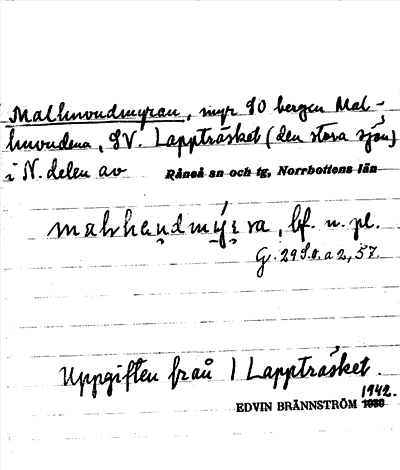 Malhuvudmyran, myr SO bergen Mal-
huvudena, SV. Lappträsket (den stora sjön)
i N. delen av Råneå sn och tg, Norrbottens län
bf. n. pl.
G. 29 S.o. a 2, 57.
Uppgiften från 1 Lappträsket.
1942.
EDVIN BRÄNNSTRÖM 1939